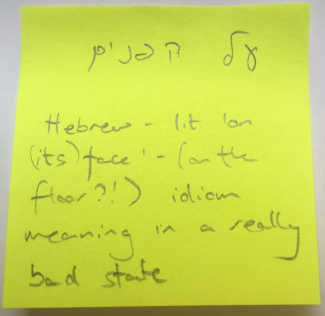 על הפנים
Hebrew - lit 'on
(its) face' - (on the
floor?!) idiom
meaning in a really
bad state